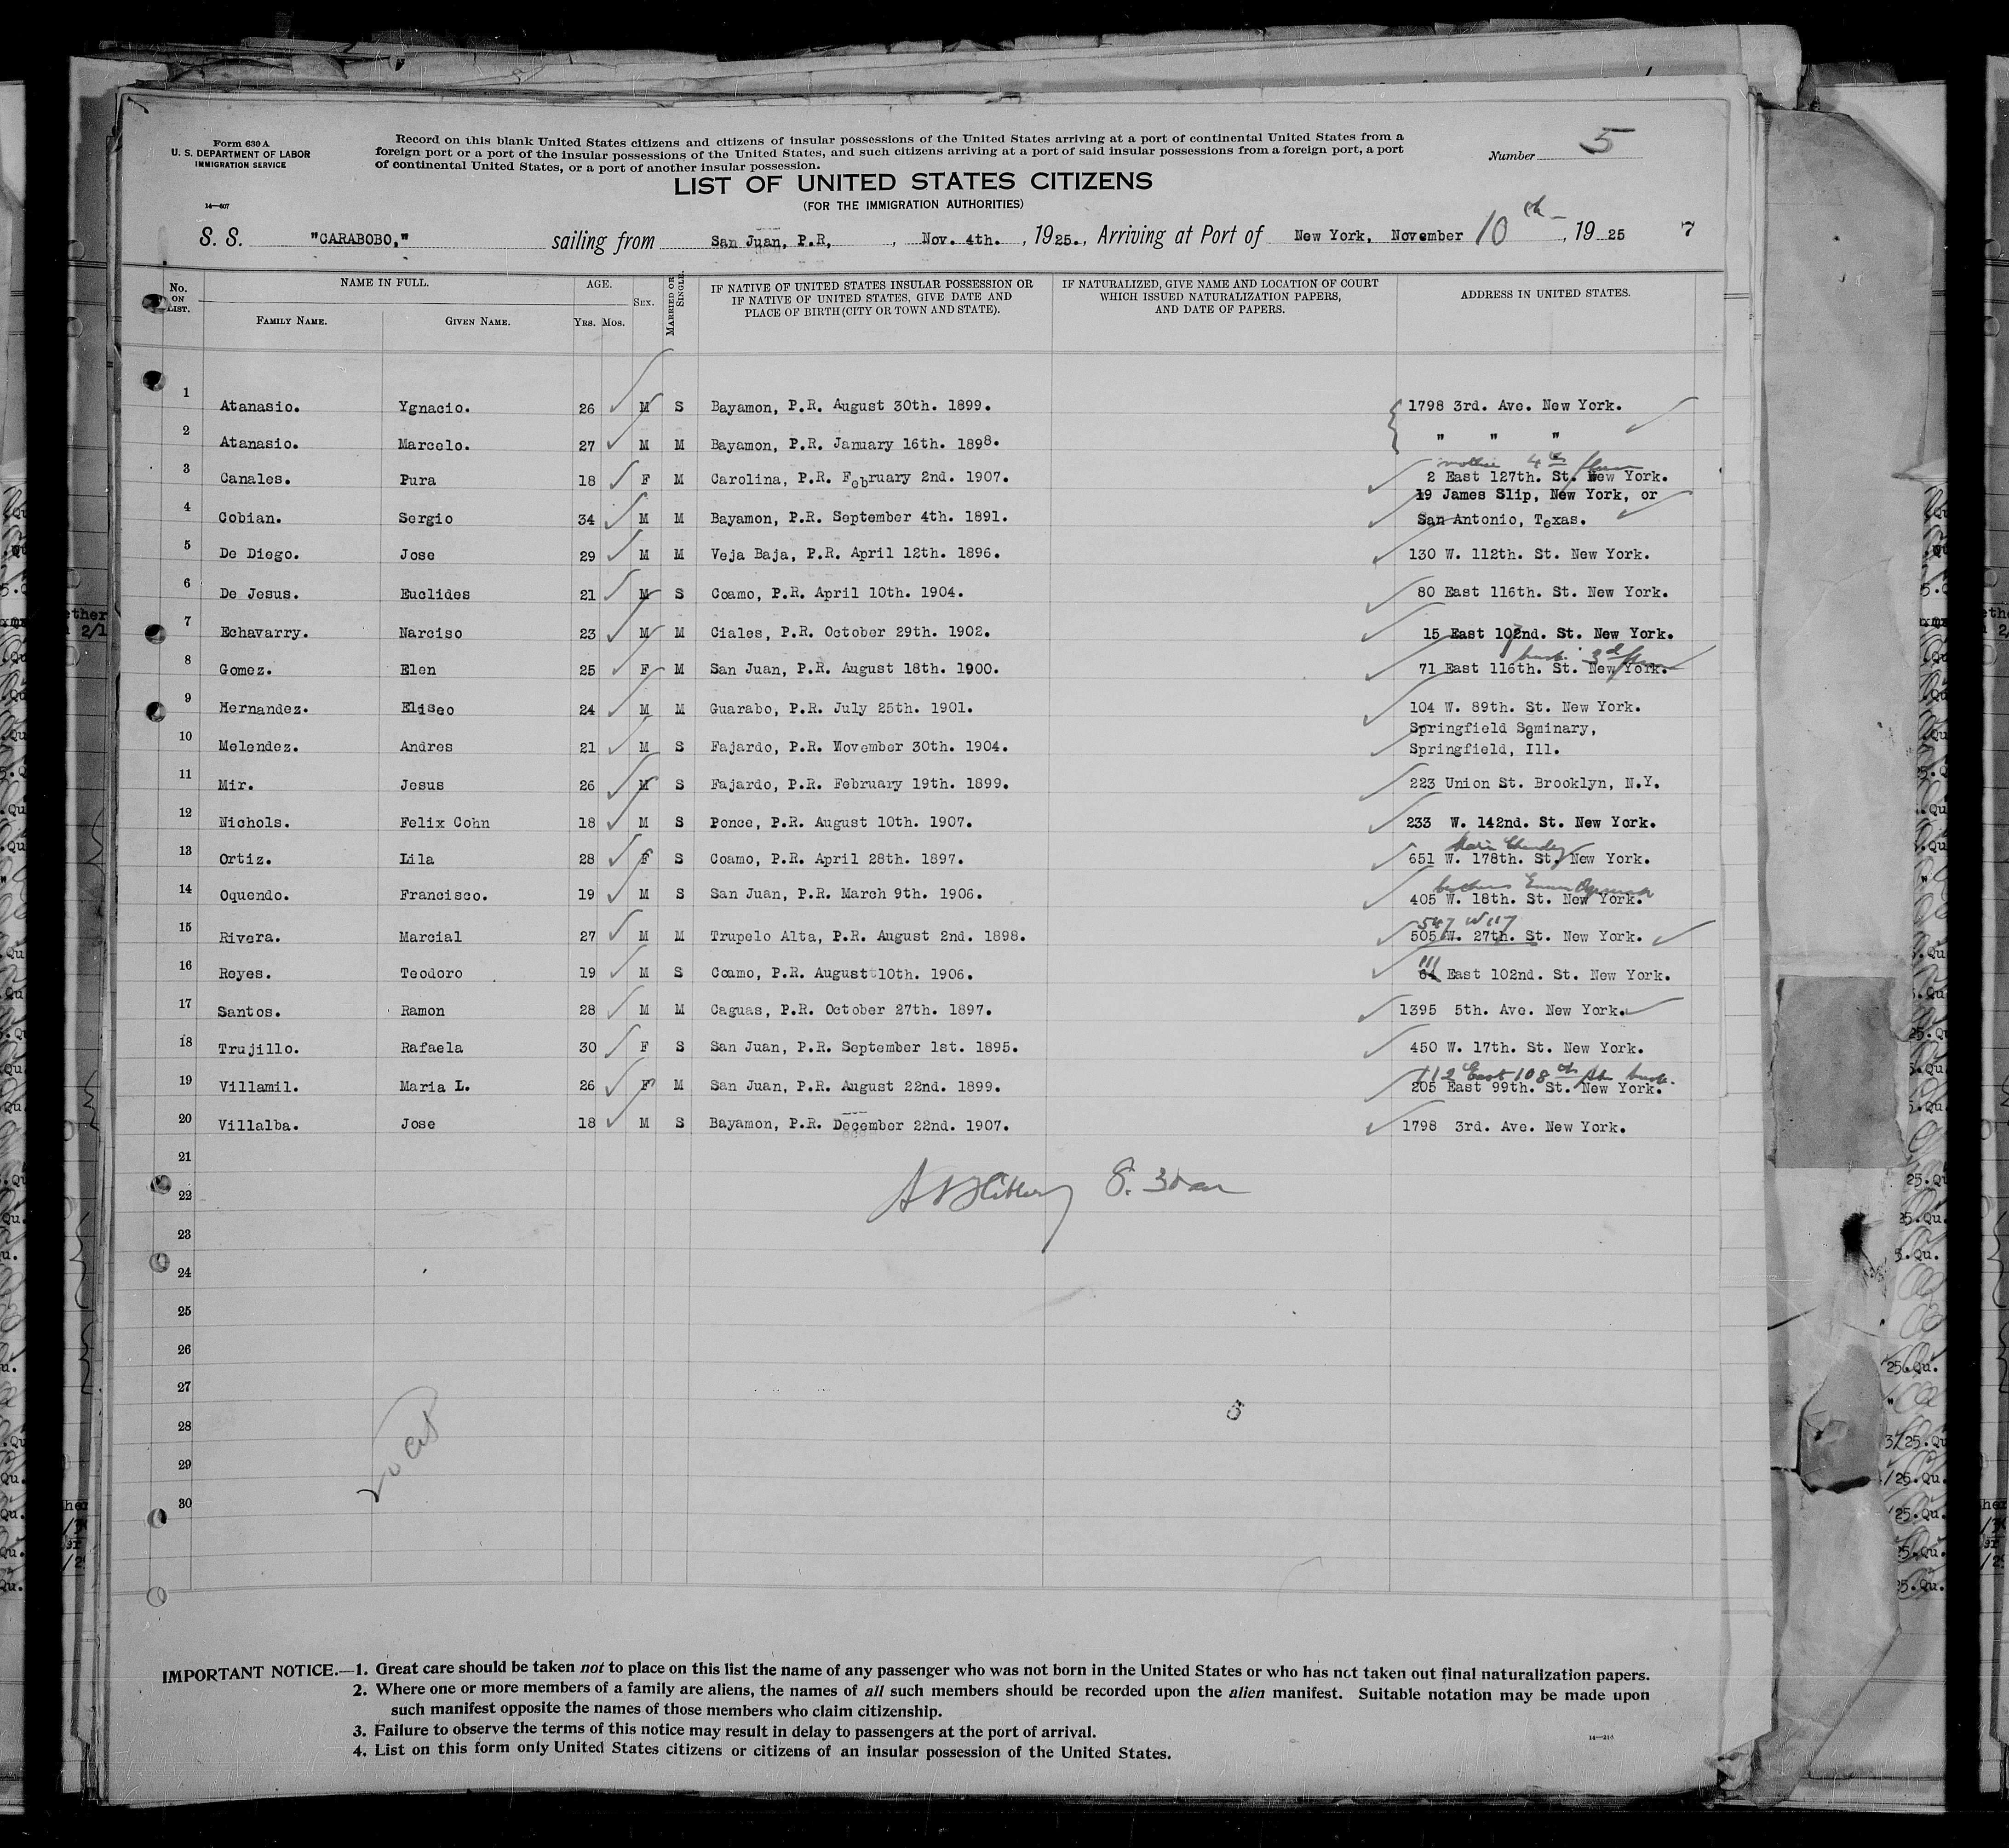 Form 630 A
U. S. DEPARTMENT OF LABOR
IMMIGRATION SERVICE
14—607
Record on this blank United States citizens and citizens of insular possessions of the United States arriving at a port of continental United States from a
foreign port or a port of the insular possessions of the United States, and such citizens arriving at a port of said insular possessions from a foreign port, a port
of continental United States, or a port of another insular possession.
Number 5
LIST OF UNITED STATES CITIZENS
(FOR THE IMMIGRATION AUTHORITIES)
S. S. "CARABOBO," sailing from San Juan, P.R, , Nov. 4th. , 1925., Arriving at Port of New York, November 10th , 1925 7
No. ON LIST. NAME IN FULL. AGE. SEX. MARRIED OR SINGLE. IF NATIVE OF UNITED STATES INSULAR POSSESSION OR IF NATIVE OF UNITED STATES, GIVE DATE AND PLACE OF BIRTH (CITY OR TOWN AND STATE). IF NATURALIZED, GIVE NAME AND LOCATION OF COURT WHICH ISSUED NATURALIZATION PAPERS, AND DATE OF PAPERS. ADDRESS IN UNITED STATES.
FAMILY NAME. GIVEN NAME. YRS. MOS.
1 Atanasio. Ygnacio. 26 M S Bayamon, P.R. August 30th. 1899. 1798 3rd. Ave. New York.
2 Atanasio. Marcelo. 27 M M Bayamon, P.R. January 16th. 1898. " " "
mother 4th floor
3 Canales. Pura 18 F M Carolina, P.R. February 2nd. 1907. 2 East 127th. St. New York.
19 James Slip, New York, or
4 Cobian. Sergio 34 M M Bayamon, P.R. September 4th. 1891. San Antonio, Texas.
5 De Diego. Jose 29 M M Veja Baja, P.R. April 12th. 1896. 130 W. 112th. St. New York.
6 De Jesus. Euclides 21 M S Coamo, P.R. April 10th. 1904. 80 East 116th. St. New York.
7 Echavarry. Narciso 23 M M Ciales, P.R. October 29th. 1902. 15 East 102nd. St. New York.
husb. 3d floor
8 Gomez. Elen 25 F M San Juan, P.R. August 18th. 1900. 71 East 116th. St. New York.
9 Hernandez. Eliseo 24 M M Guarabo, P.R. July 25th. 1901. 104 W. 89th. St. New York.
Springfield Seminary,
10 Melendez. Andres 21 M S Fajardo, P.R. November 30th. 1904. Springfield, Ill.
11 Mir. Jesus 26 M S Fajardo, P.R. February 19th. 1899. 223 Union St. Brooklyn, N.Y.
12 Nichols. Felix Cohn 18 M S Ponce, P.R. August 10th. 1907. 233 W. 142nd. St. New York.
13 Ortiz. Lila 28 F S Coamo, P.R. April 28th. 1897. 651 W. 178th. St. New York.
brothers
14 Oquendo. Francisco. 19 M S San Juan, P.R. March 9th. 1906. 405 W. 18th. St. New York.
547 W 117
15 Rivera. Marcial 27 M M Trupelo Alta, P.R. August 2nd. 1898. 505 W. 27th. St. New York.
111
16 Reyes. Teodoro 19 M S Coamo, P.R. August 10th. 1906. 64 East 102nd. St. New York.
17 Santos. Ramon 28 M M Caguas, P.R. October 27th. 1897. 1395 5th. Ave. New York.
18 Trujillo. Rafaela 30 F S San Juan, P.R. September 1st. 1895. 450 W. 17th. St. New York.
112 East 108th husb.
19 Villamil. Maria L. 26 F M San Juan, P.R. August 22nd. 1899. 205 East 99th. St. New York.
20 Villalba. Jose 18 M S Bayamon, P.R. December 22nd. 1907. 1798 3rd. Ave. New York.
21
22 8.30 am
23
24
25
26
27
28
29
30
IMPORTANT NOTICE.—1. Great care should be taken not to place on this list the name of any passenger who was not born in the United States or who has not taken out final naturalization papers.
2. Where one or more members of a family are aliens, the names of all such members should be recorded upon the alien manifest. Suitable notation may be made upon
such manifest opposite the names of those members who claim citizenship.
3. Failure to observe the terms of this notice may result in delay to passengers at the port of arrival.
4. List on this form only United States citizens or citizens of an insular possession of the United States.